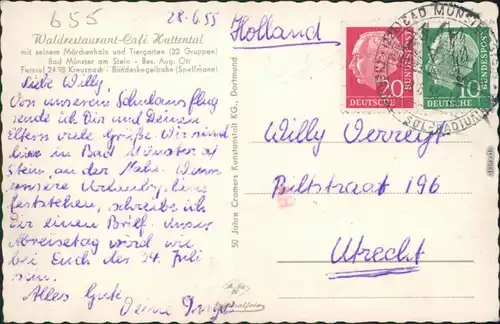 655
28-6-55
Waldrestaurant-Café Huttental
mit seinem Märchenhain und Tiergarten (22 Gruppen)
Bad Münster am Stein - Bes. Aug. Ott
Fernruf 2498 Kreuznach - Bundeskegelbahn (Spellmann)
Liebe Willy,
Von unserem Schulausflug
sende ich Dir und Deinen
Eltern viele Grüße. Wir sind
hier in Bad Münster a/
Stein, an der Nahe. Wenn
unsere Urlaub
feststehen, schreibe ich
Dir einen Brief. Unser
Abreisetag wird wie
bei Euch der 24. Juli
sein.
Alles Gute
Deine Inge
50 Jahre Cramers Kunstanstalt KG., Dortmund
Holland
BAD MÜNSTER
DEUTSCHE BUNDESPOST 20
DEUTSCHE BUNDESPOST 10
Willy Verreyt
Biltstraat 196
Utrecht